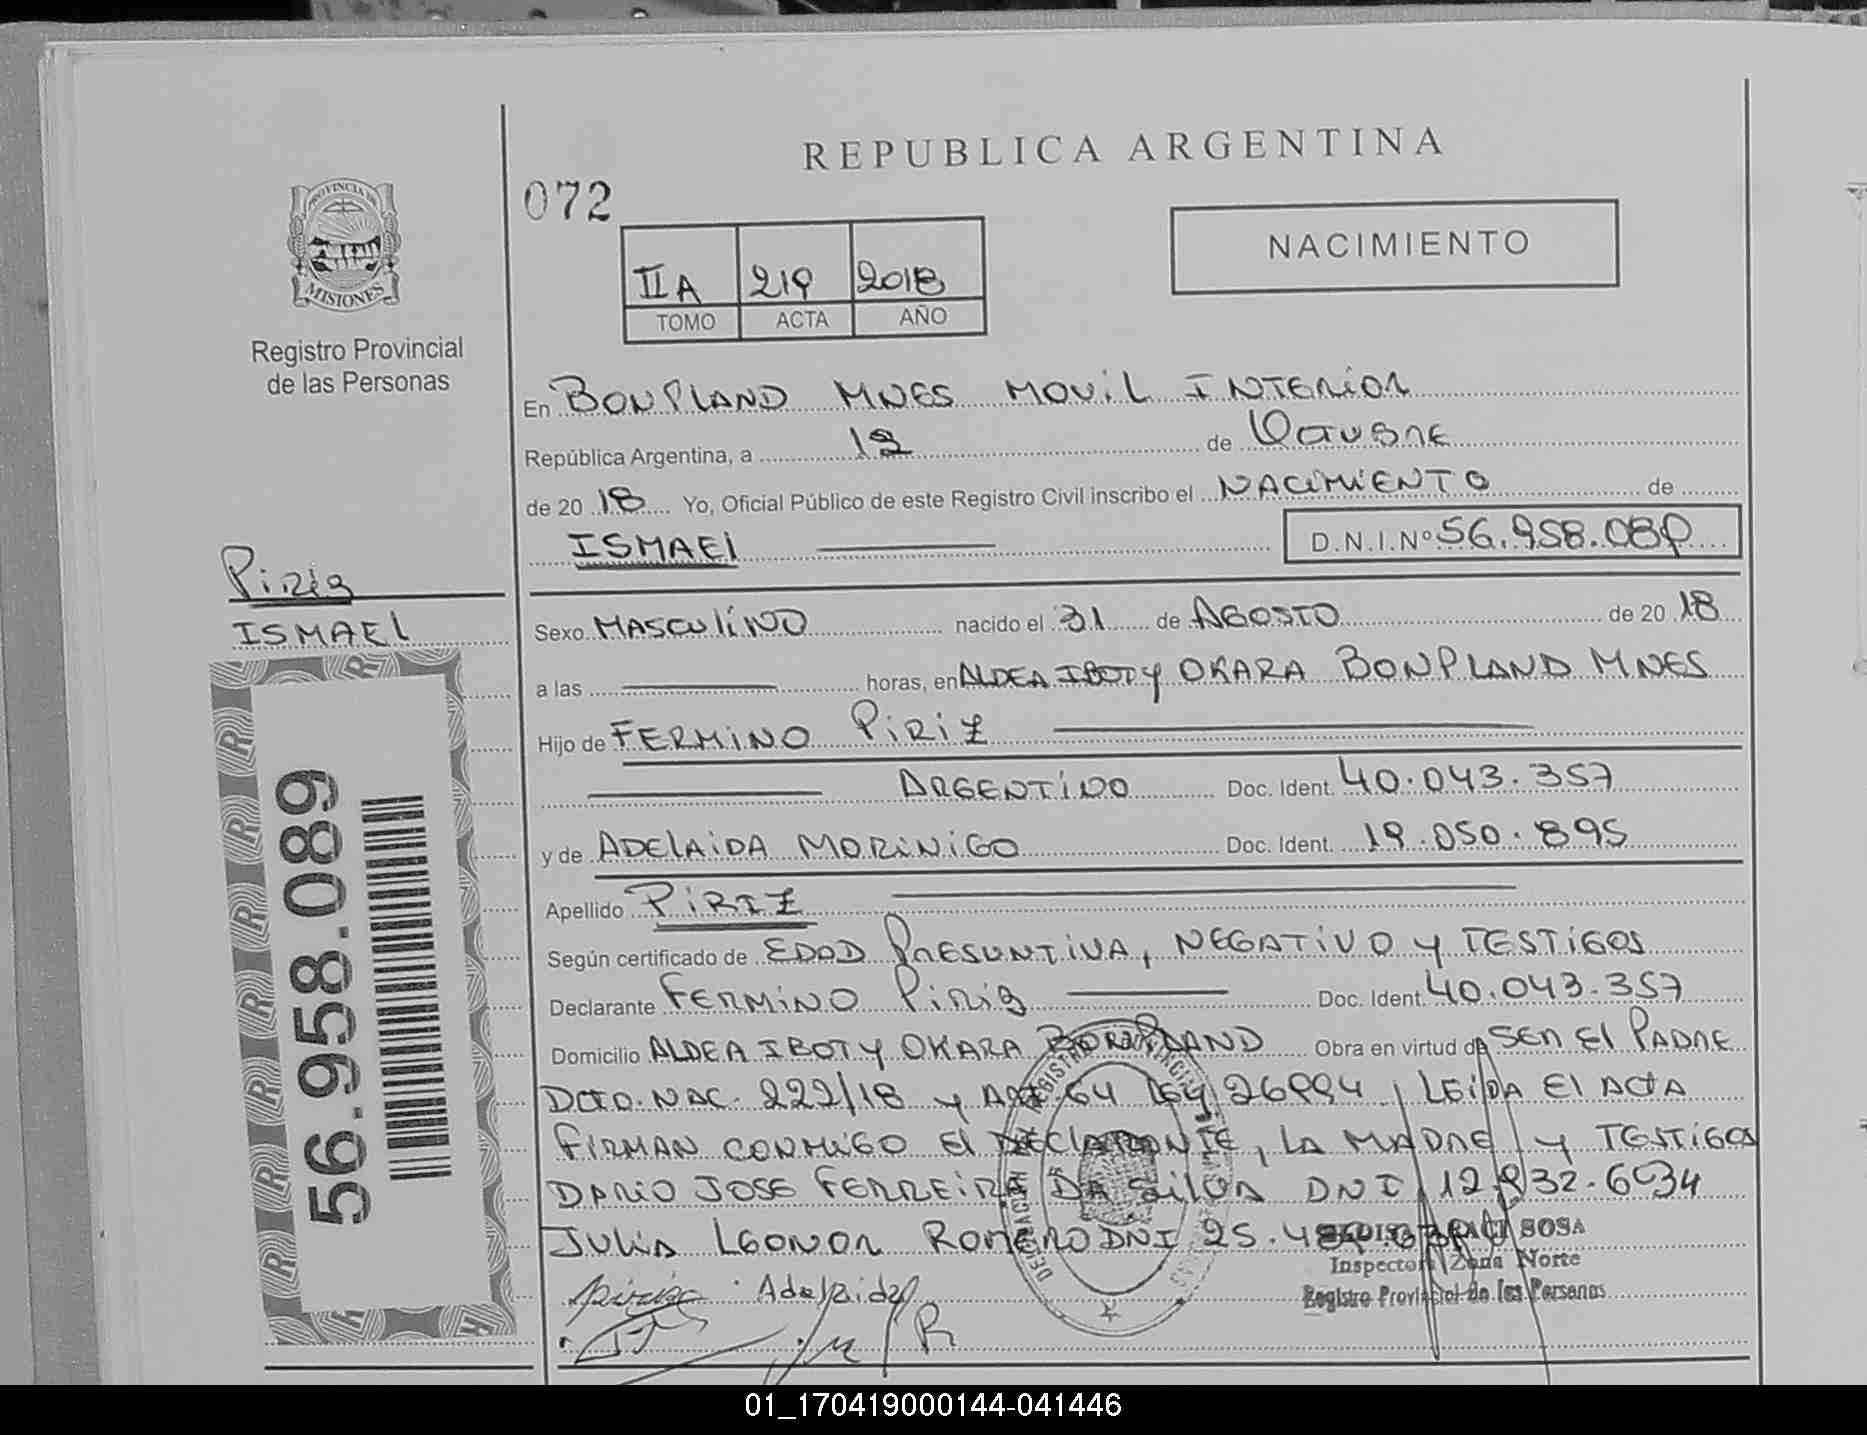 REPUBLICA ARGENTINA
072
NACIMIENTO
IIA 219 2018
TOMO ACTA AÑO
PROVINCIA DE
MISIONES
Registro Provincial
de las Personas
En BONPLAND MNES MOVIL INTERIOR
República Argentina, a 12 de OCTUBRE
de 20 18 Yo, Oficial Público de este Registro Civil inscribo el NACIMIENTO de
ISMAEL D.N.I.Nº 56.958.089
Piriz
ISMAEL
Sexo MASCULINO nacido el 31 de AGOSTO de 20 18
a las horas, en ALDEA IBOTY OKARA BONPLAND MNES
Hijo de FERMINO PIRIZ
ARGENTINO Doc. Ident. 40.043.357
y de ADELAIDA MORINIGO Doc. Ident. 19.050.895
Apellido PIRIZ
Según certificado de EDAD PRESUNTIVA, NEGATIVO y TESTIGOS
Declarante FERMINO PIRIZ Doc. Ident. 40.043.357
Domicilio ALDEA IBOTY OKARA BONPLAND Obra en virtud de SER El PADRE
DCTO. NAC. 222/18 y ART. 64 LEY 26994, LEIDA El ACTA
FIRMAN CONMIGO El DECLARANTE, LA MADRE y TESTIGOS
DARIO JOSE FERREIRA DA SILVA DNI 12.932.6034
JULIA LEONOR ROMERO DNI 25.
SOSA
Inspector Zona Norte
Registro Provincial de las Personas
Adelaida
R
56.958.089
01_170419000144-041446